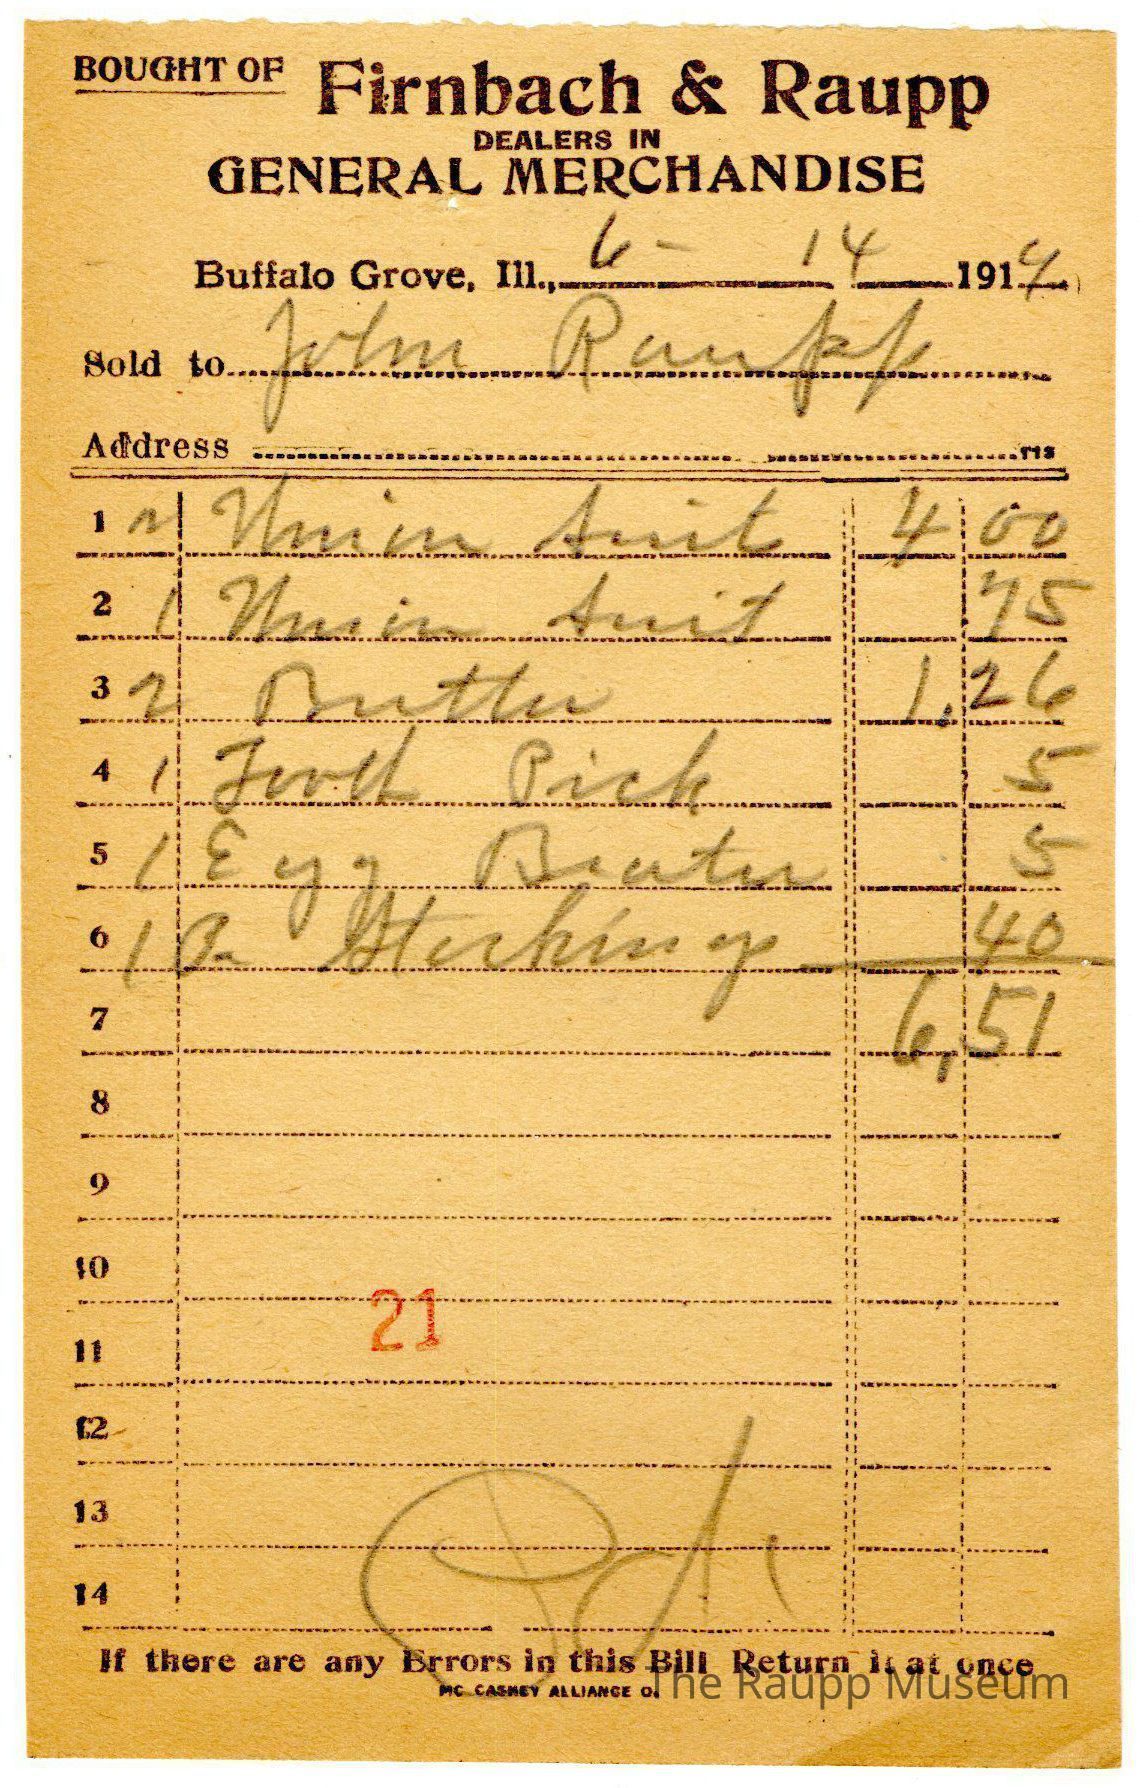 BOUGHT OF Firnbach & Raupp
DEALERS IN
GENERAL MERCHANDISE
Buffalo Grove, Ill., 6 - 14 1914
Sold to John Raupp
Address
1 2 Union Suit 4 00
2 1 Union Suit 75
3 2 Butter 1.26
4 1 Tooth Pick 5
5 1 Egg Beater 5
6 1 Pr Stockings 40
7 6,51
8
9
10
21
11
12
13
Pd
14
If there are any Errors in this Bill Return it at once
MC CASKEY ALLIANCE O.
The Raupp Museum